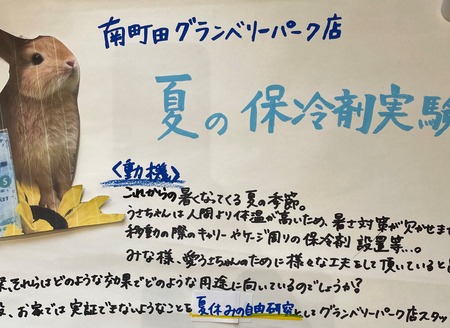 南町田グランベリーパーク店
夏の保冷剤実験
〈動機〉
これからの暑くなってくる夏の季節。
うさちゃんは人間より体温が高いため、暑さ対策が欠かせませ
移動の際のキャリーやケージ周りの保冷剤設置等…。
みな様、愛うさちゃんのために様々な工夫をして頂いていると
果、それらはどのような効果でどのような用途に向いているのでしょうか?
段、お家では実証できないようなことを夏休みの自由研究としてグランベリーパーク店スタッ